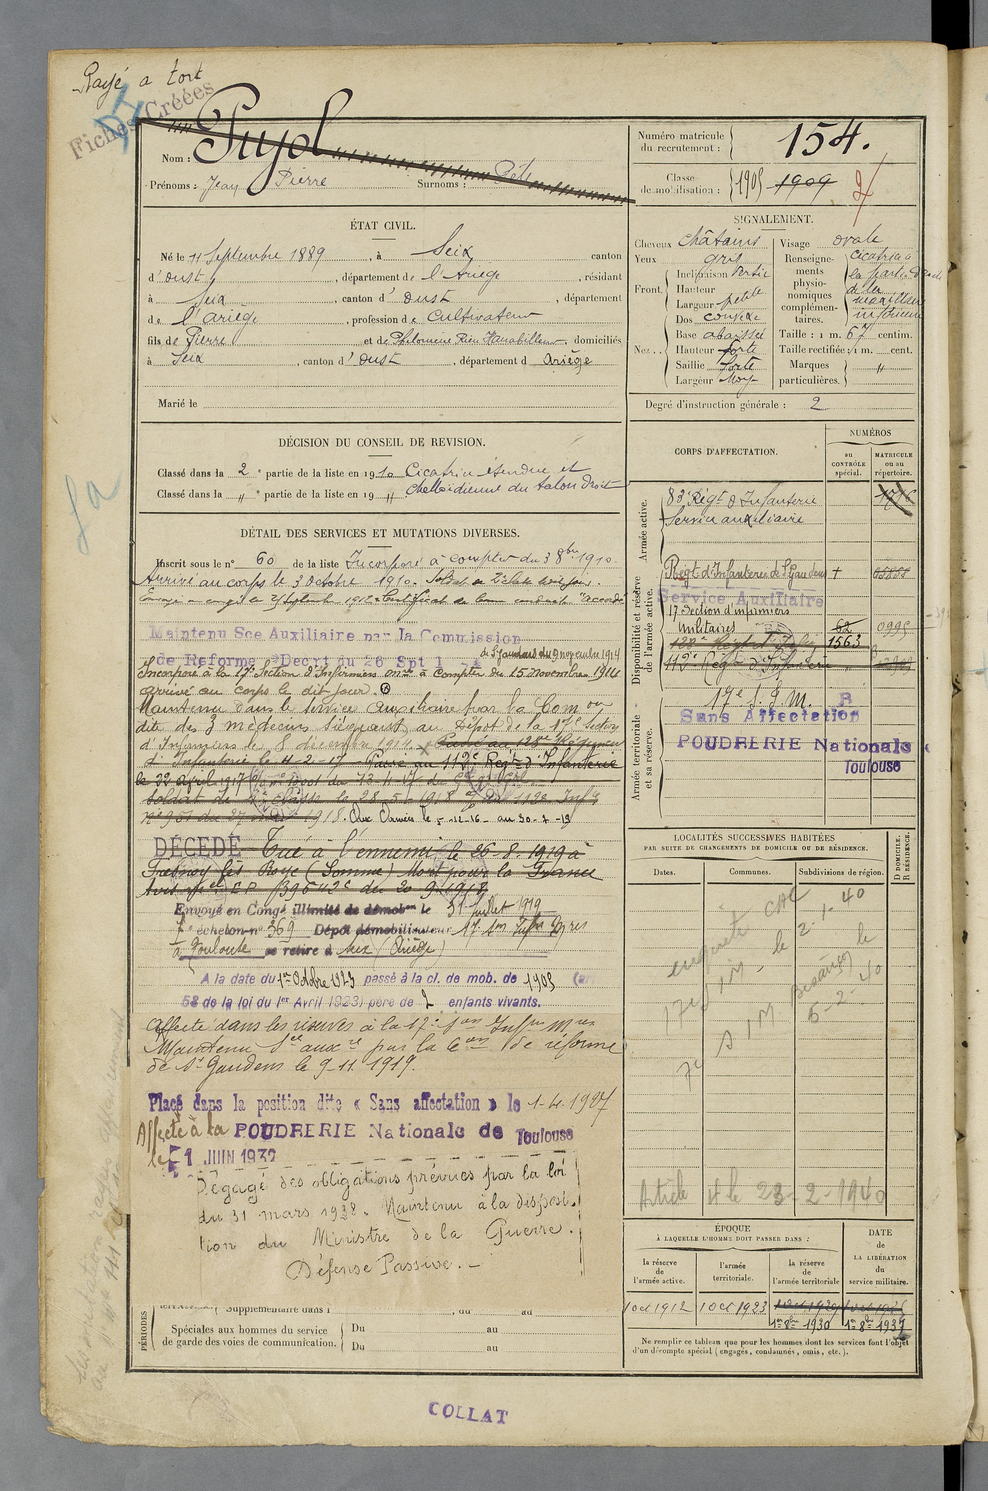 Rayé à tort
Fiches Créées
Nom : Pujol
Prénoms : Jean Pierre Surnoms :
Numéro matricule du recrutement : 154.
Classe de mobilisation : 1903 1909
ÉTAT CIVIL.
Né le 11 Septembre 1889, à Seix canton
d'oust, département de l'Ariège, résidant
à Seix, canton d'oust, département
de l'ariège, profession de Cultivateur
fils de Pierre et de Philomène Rieu, domiciliés
à Seix, canton d'oust, département d Ariège
Marié le
SIGNALEMENT.
Cheveux châtains
Yeux gris
Front. Inclinaison
Hauteur
Largeur petite
Nez.. Dos convexe
Base abaissée
Hauteur forte
Saillie forte
Largeur Moy
Visage ovale
Renseignements physionomiques complémentaires. cicatrice à la partie de la inférieure
Taille : 1 m. 67 centim.
Taille rectifiée : 1 m. cent.
Marques particulières. "
Degré d'instruction générale : 2
DÉCISION DU CONSEIL DE REVISION.
Classé dans la 2e partie de la liste en 1910 Cicatrice étendue et
Classé dans la " e partie de la liste en 19 " du talon droit
DÉTAIL DES SERVICES ET MUTATIONS DIVERSES.
Inscrit sous le n° 60 de la liste Incorporé à compter du 3 8bre 1910.
Arrivé au corps le 3 Octobre 1910. Soldat de 2e classe
Envoyé en congé le 25 Septembre 1912. Certificat de bonne conduite "accordé"
Maintenu Sce Auxiliaire par la Commission
de St Gaudens du 9 novembre 1914
de Réforme Decrt du 26 Spt 1
Incorporé à la 17e Section d'Infirmiers à compter du 15 novembre 1914
arrivé au corps le dit jour.
Maintenu dans le service auxiliaire par la Comon
dite des 3 médecins siégeant au Dépôt de la 17e Section
d'Infirmiers le 8 décembre 1914. Passé au 128e Régiment
d'Infanterie le 4-2-17 Passé au 112e Regt d'Infanterie
le 22 avril 1917
Soldat de 1e classe le 28-5-1918
n° 951 du 27 1918. Aux Armées le 5-12-16 au 30-7-19
DÉCÉDÉ Tué à l'ennemi le 26-8-1919 à
Fresnoy les Roye (Somme) Mort pour la France
Envoyé en Congé illimité de démobon le 31 juillet 1919
7e échelon n° 369 Dépôt démobilisateur 17e Son Infrs Mres
à Toulouse se retire à Seix (Ariège)
A la date du 1er Octobre 1923 passé à la cl. de mob. de 1903 (art
58 de la loi du 1er Avril 1923) père de 2 enfants vivants.
Affecté dans les réserves à la 17e Son Infrs Mres
Maintenu Sce auxre par la Com de réforme
de St Gaudens le 9-11-1919.
Placé dans la position dite « Sans affectation » le 1-4-1927
Affecté à la POUDRERIE Nationale de Toulouse
le 1 JUIN 1932
Dégagé des obligations prévues par la loi
du 31 mars 1928. Maintenu à la disposi-
tion du Ministre de la Guerre.
Défense Passive. -
PÉRIODES
Supplémentaire dans l , du au
Spéciales aux hommes du service de garde des voies de communication.
Du au
Du au
CORPS D'AFFECTATION.
NUMÉROS
au CONTRÔLE spécial.
MATRICULE ou au répertoire.
Armée active.
83e Régt d'Infanterie
Service auxiliaire
Disponibilité et réserve de l'armée active.
Regt d'Infanterie de St Gaudens
Service Auxiliaire
17 Section d'infirmiers militaires 62 0995
128e Régt d'Infie 1563
112e Régt d'Infanterie
Armée territoriale et sa réserve.
17e S. I. M.
R
Sans Affectation
POUDRERIE Nationale
Toulouse
LOCALITÉS SUCCESSIVES HABITÉES
PAR SUITE DE CHANGEMENTS DE DOMICILE OU DE RÉSIDENCE.
Dates. Communes. Subdivisions de région.
D DOMICILE. R RÉSIDENCE.
le 2-1-40
Besançon le
5-2-40
Article 4 le 23-2-1940
ÉPOQUE
À LAQUELLE L'HOMME DOIT PASSER DANS :
la réserve de l'armée active.
l'armée territoriale.
la réserve de l'armée territoriale
DATE de LA LIBÉRATION du service militaire.
1 Oct 1912 1 Oct 1923 1 Oct 1929
1er 8bre 1930 1er 8bre 1937
Ne remplir ce tableau que pour les hommes dont les services font l'objet
d'un décompte spécial (engagés, condamnés, omis, etc.).
COLLAT